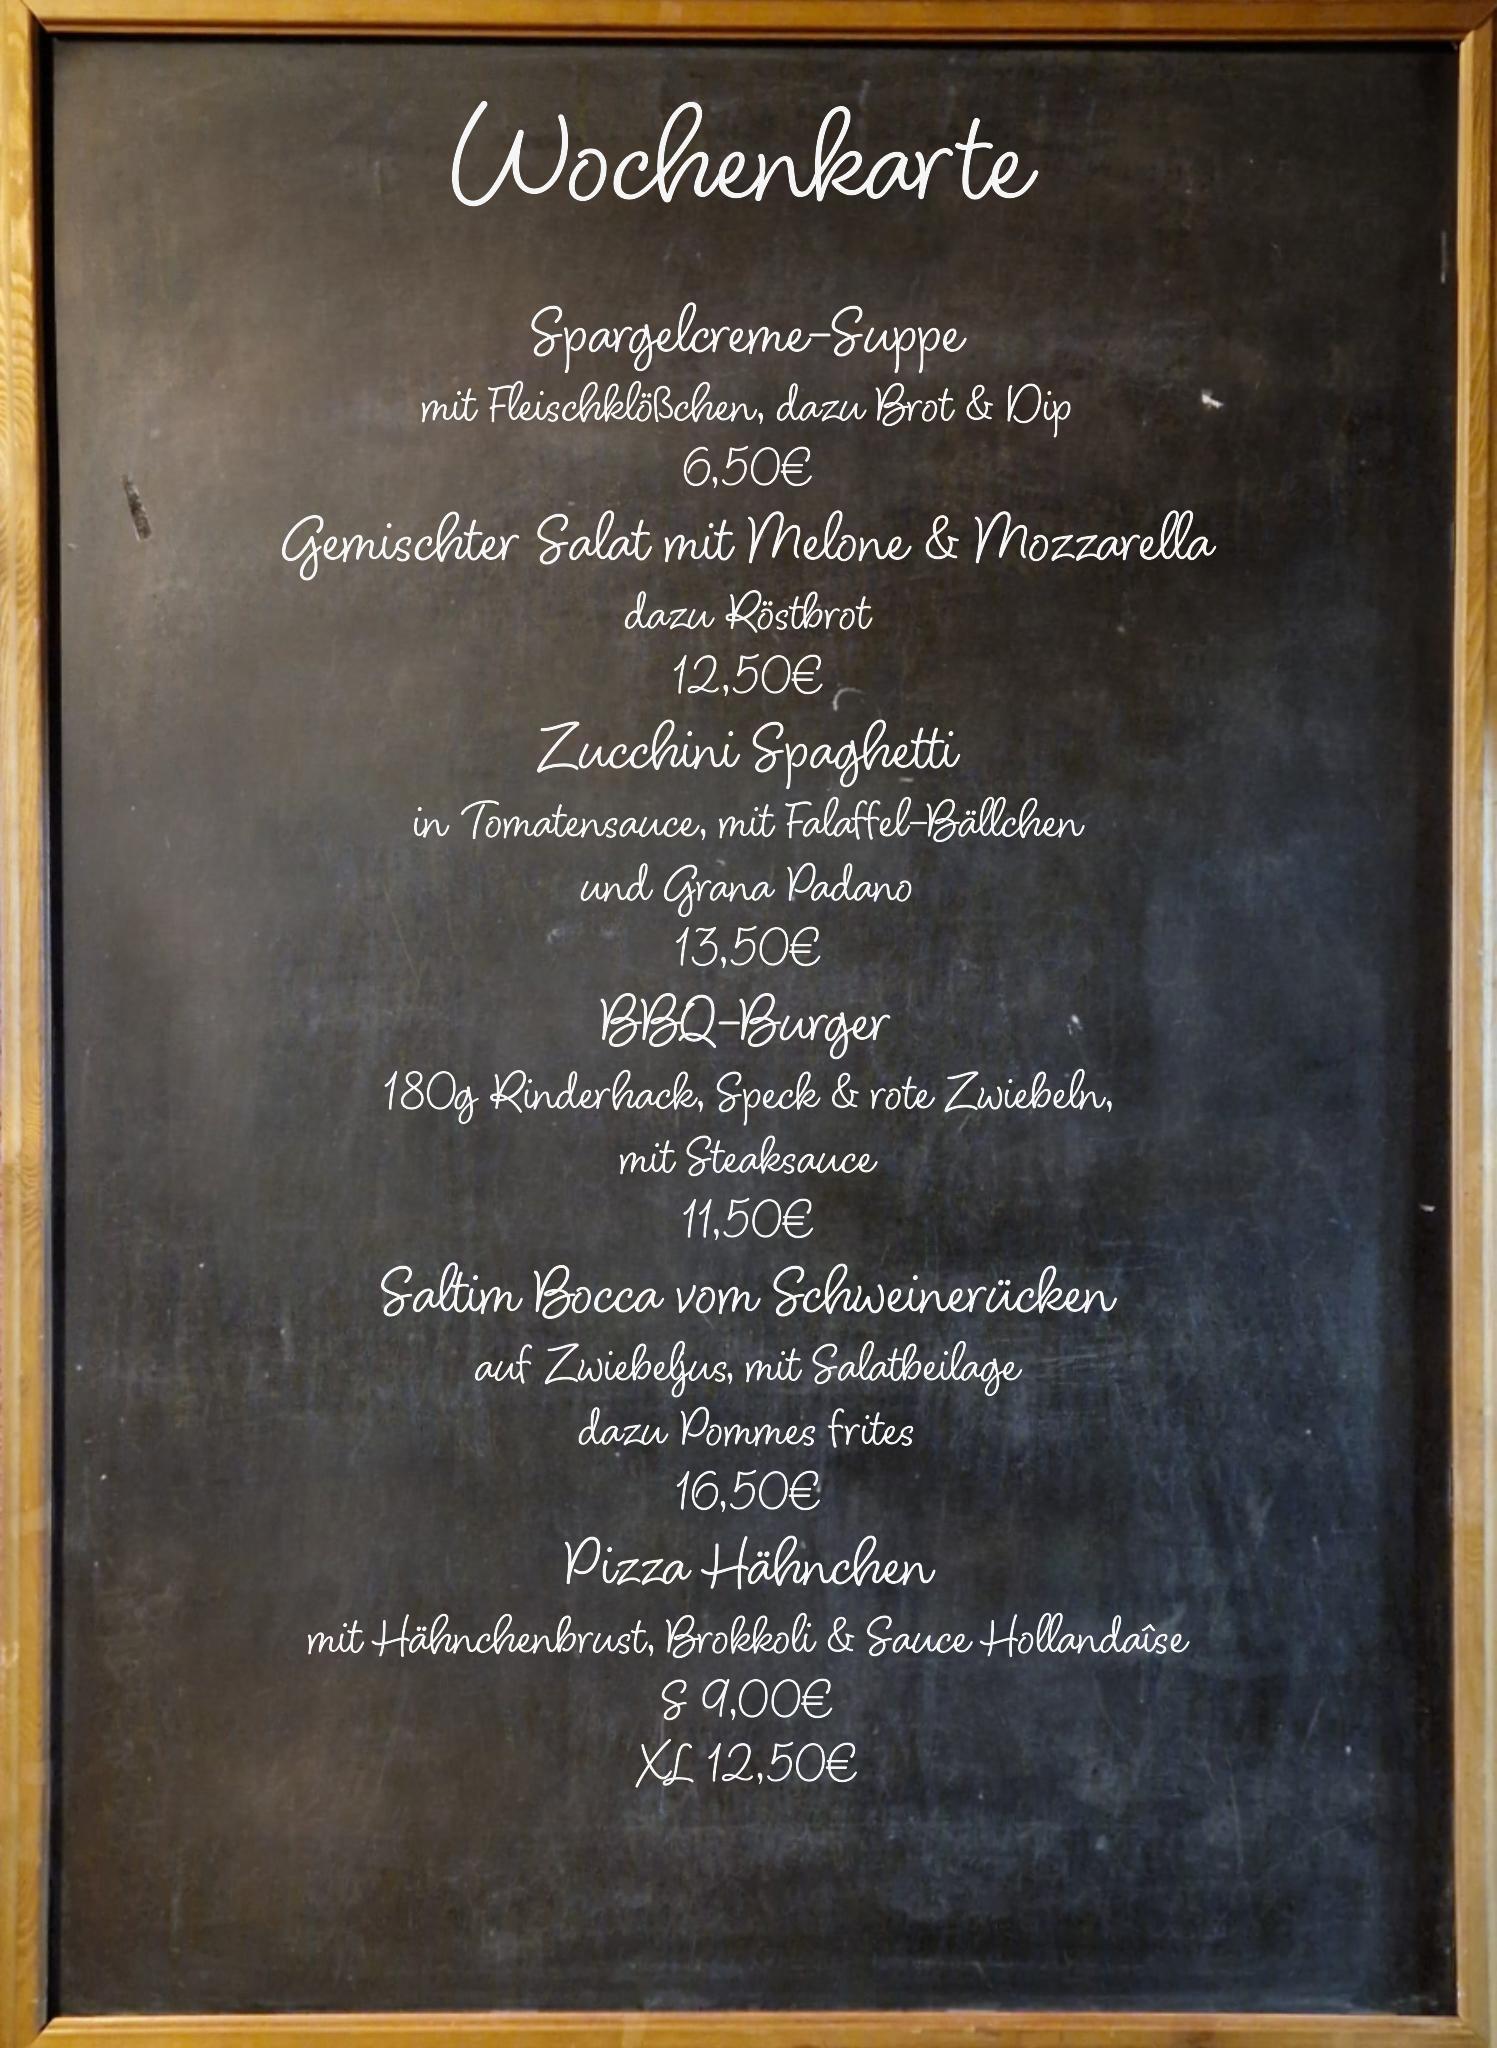 Wochenkarte
Spargelcreme-Suppe
mit Fleischklößchen, dazu Brot & Dip
6,50€
Gemischter Salat mit Melone & Mozzarella
dazu Röstbrot
12,50€
Zucchini Spaghetti
in Tomatensauce, mit Falaffel-Bällchen
und Grana Padano
13,50€
BBQ-Burger
180g Rinderhack, Speck & rote Zwiebeln,
mit Steaksauce
11,50€
Saltim Bocca vom Schweinerücken
auf Zwiebeljus, mit Salatbeilage
dazu Pommes frites
16,50€
Pizza Hähnchen
mit Hähnchenbrust, Brokkoli & Sauce Hollandaîse
S 9,00€
XL 12,50€